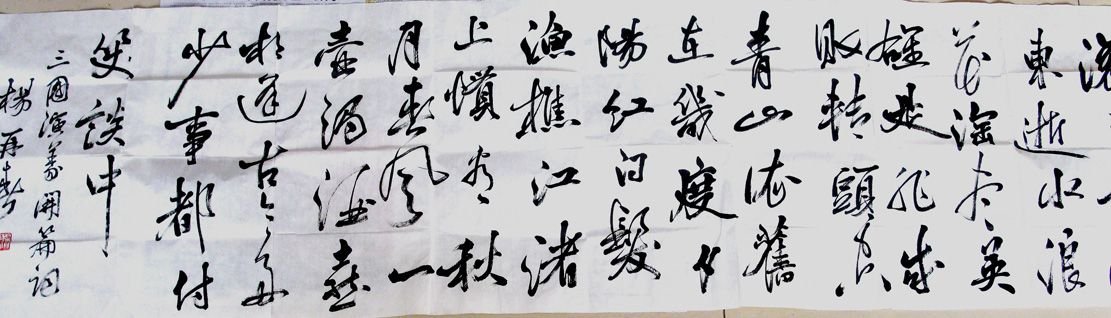 東逝水浪
花淘尽英
雄是非成
敗轉頭空
青山依舊
在幾度夕
陽紅白髮
漁樵江渚
上慣看秋
月春風一
壺濁酒喜
相逢古今多
少事都付
笑談中
三國演義開篇詞
楊再春